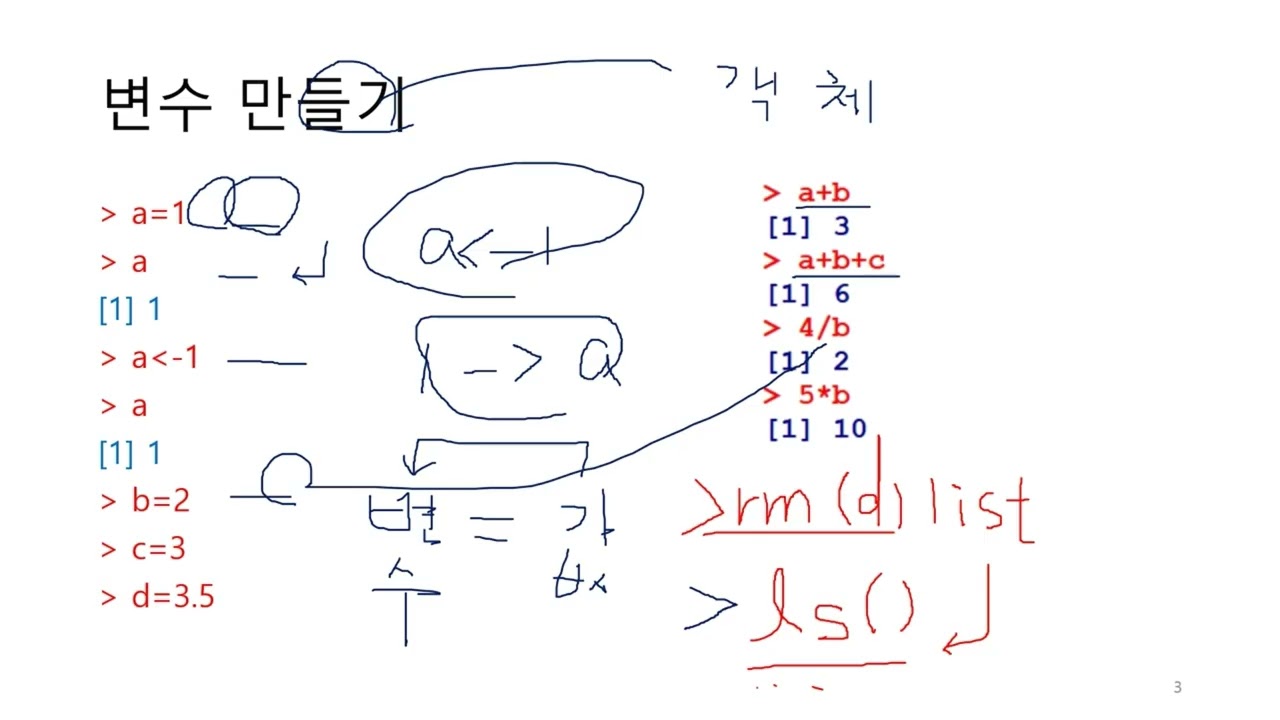 변수 만들기
객체
> a=1
> a
[1] 1
> a<-1
> a
[1] 1
> b=2
> c=3
> d=3.5
a<-1
1 -> a
변수 = 값
> a+b
[1] 3
> a+b+c
[1] 6
> 4/b
[1] 2
> 5*b
[1] 10
>rm(d) list
> ls()
3